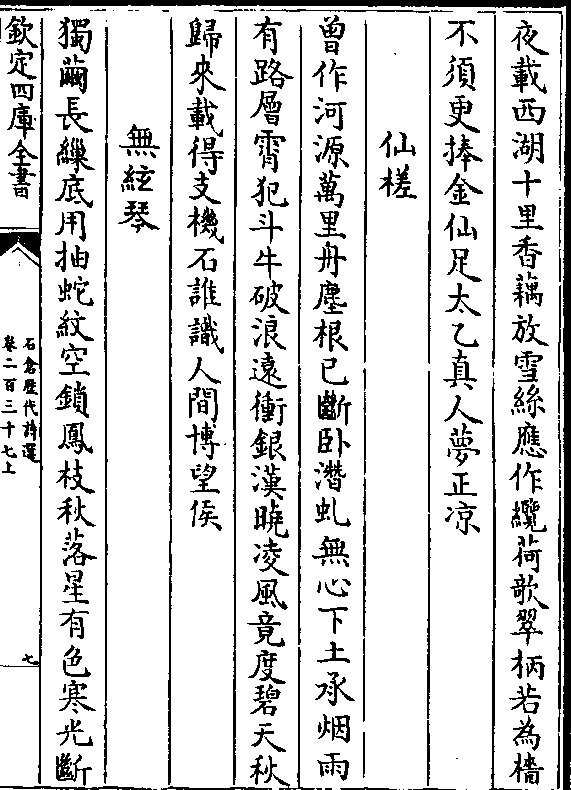 夜載西湖十里香藕放雪絲應作纜荷歌翠柄若為檣
不須更捧金仙足太乙真人夢正凉
仙槎
曽作河源萬里舟塵根已斷卧潛虬無心下土承烟雨
有路層霄犯斗牛破浪遠衝銀漢曉凌風竟度碧天秋
歸來載得支機石誰識人間博望侯
無絃琴
獨繭長繅底用抽蛇紋空鎖鳳枝秋落星有色寒光斷
欽定四庫全書
石倉歴代詩選
卷二百三十七上
七